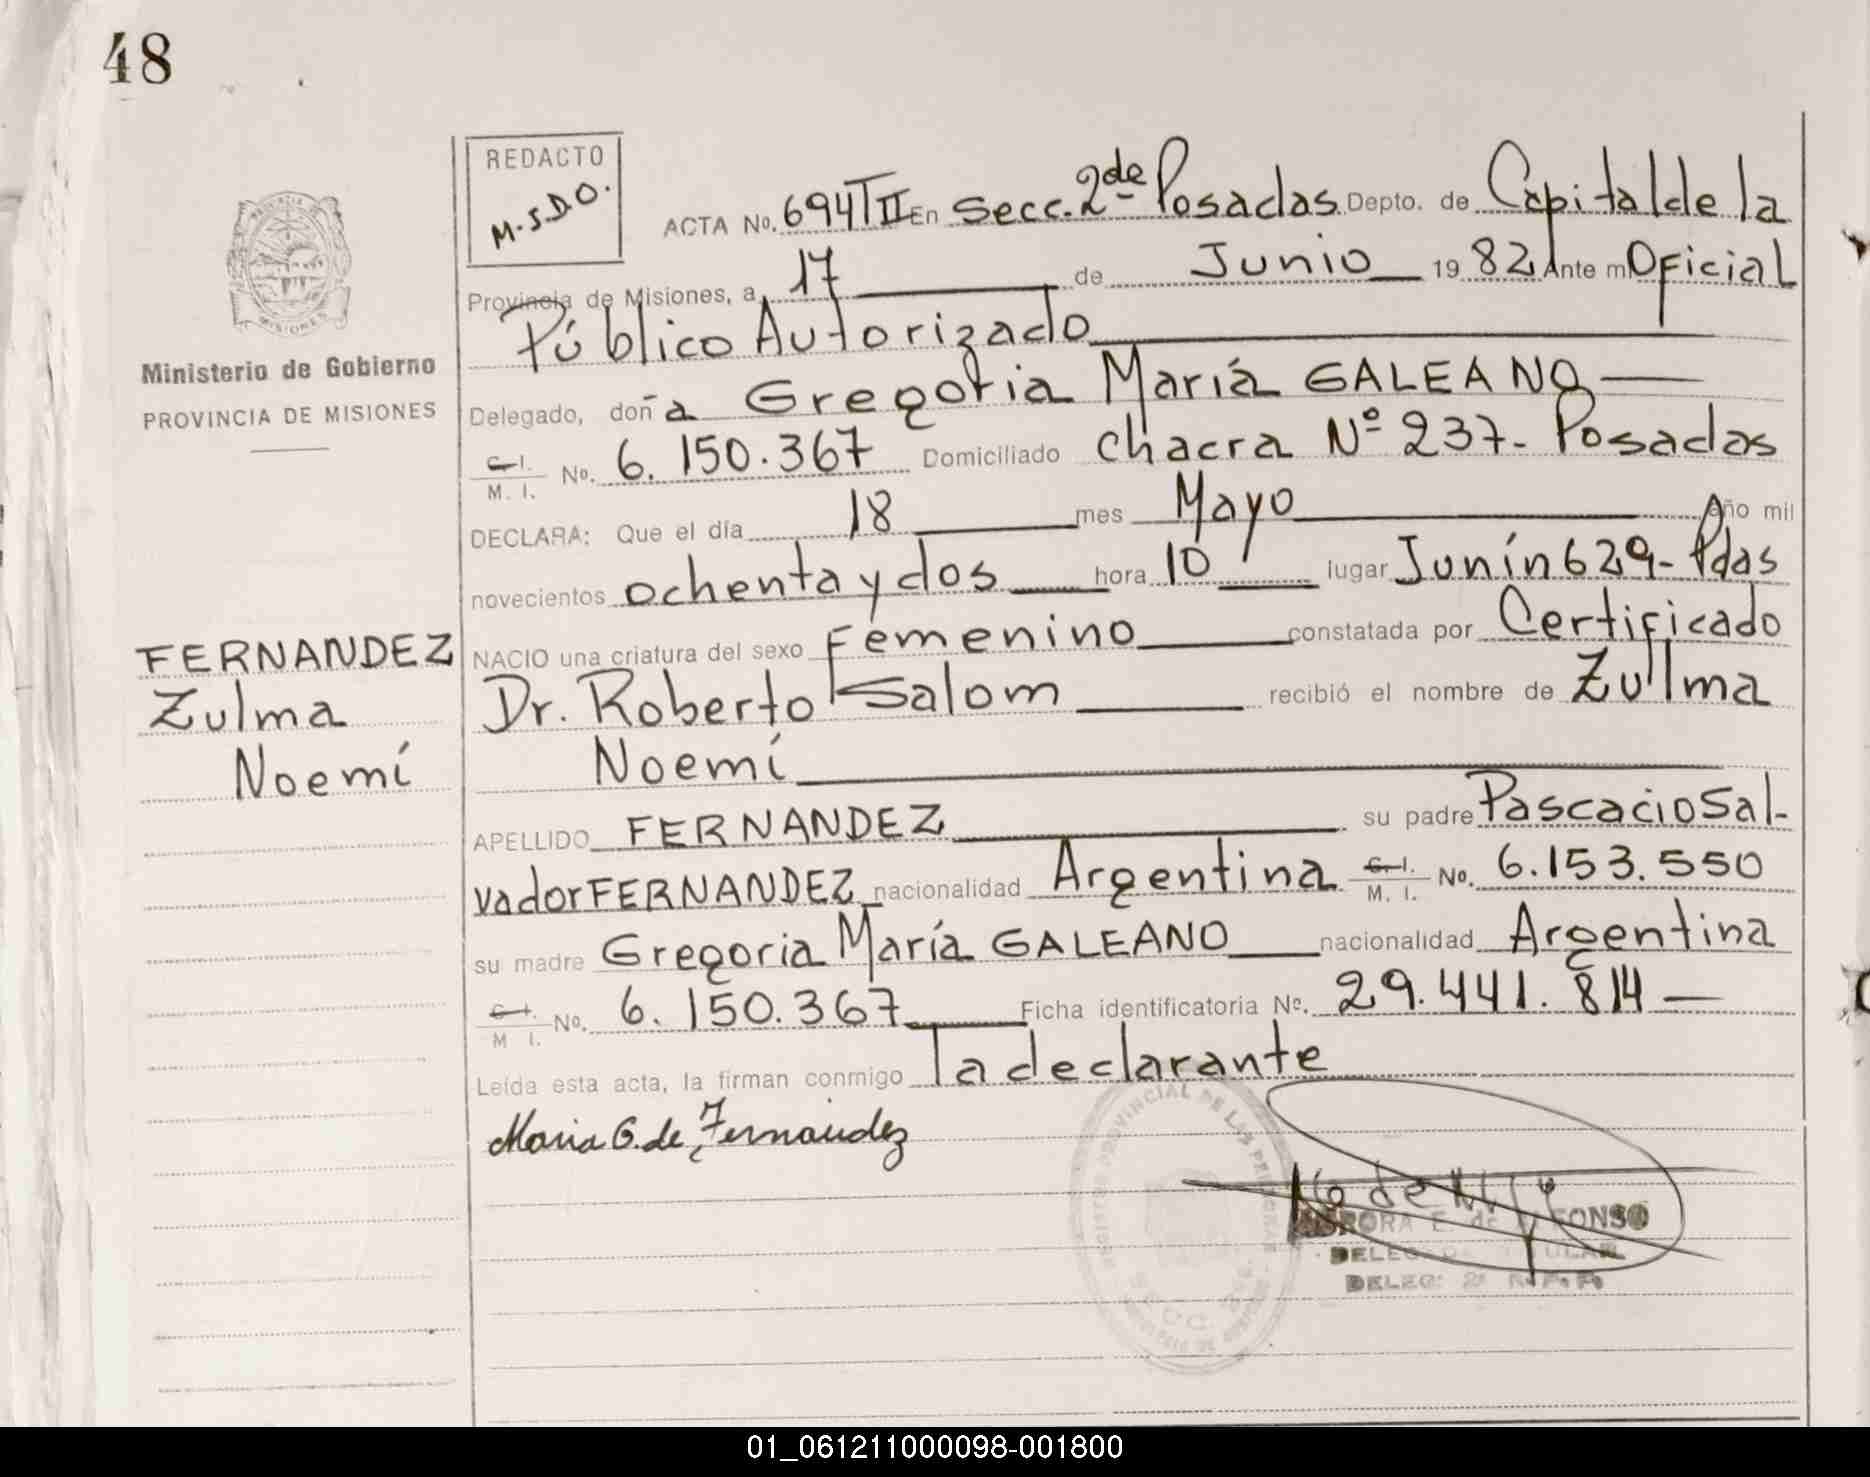 48
REDACTO
M.S.D.O.
PROVINCIA DE
MISIONES
Ministerio de Gobierno
PROVINCIA DE MISIONES
FERNANDEZ
Zulma
Noemí
ACTA No. 694TII En Secc. 2de Posadas Depto. de Capital de la
Provincia de Misiones, a 17 de Junio 1982 Ante mí Oficial
Público Autorizado
Delegado, doña Gregoria María GALEANO
C. I. / M. I. No. 6.150.367 Domiciliado chacra Nº 237- Posadas
DECLARA: Que el día 18 mes Mayo Año mil
novecientos ochenta y dos hora 10 lugar Junín 629- Pdas
NACIO una criatura del sexo Femenino constatada por Certificado
Dr. Roberto Salom recibió el nombre de Zulma
Noemí
APELLIDO FERNANDEZ su padre Pascacio Sal-
vador FERNANDEZ nacionalidad Argentina C. I. / M. I. No. 6.153.550
su madre Gregoria María GALEANO nacionalidad Argentina
C. I. / M. I. No. 6.150.367 Ficha identificatoria No. 29.441.814
Leída esta acta, la firman conmigo la declarante
Maria G. de Fernández
REGISTRO PROVINCIAL DE LAS PERSONAS
SECC.
E. de
DELEG: 2
01_061211000098-001800